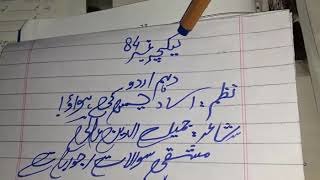 لیکچر نمبر 84
دہم اردو
نظم: اے وادی کی ہواؤ!
شاعر: جمیل الدین عالی
مشقی سوالات / جوابات